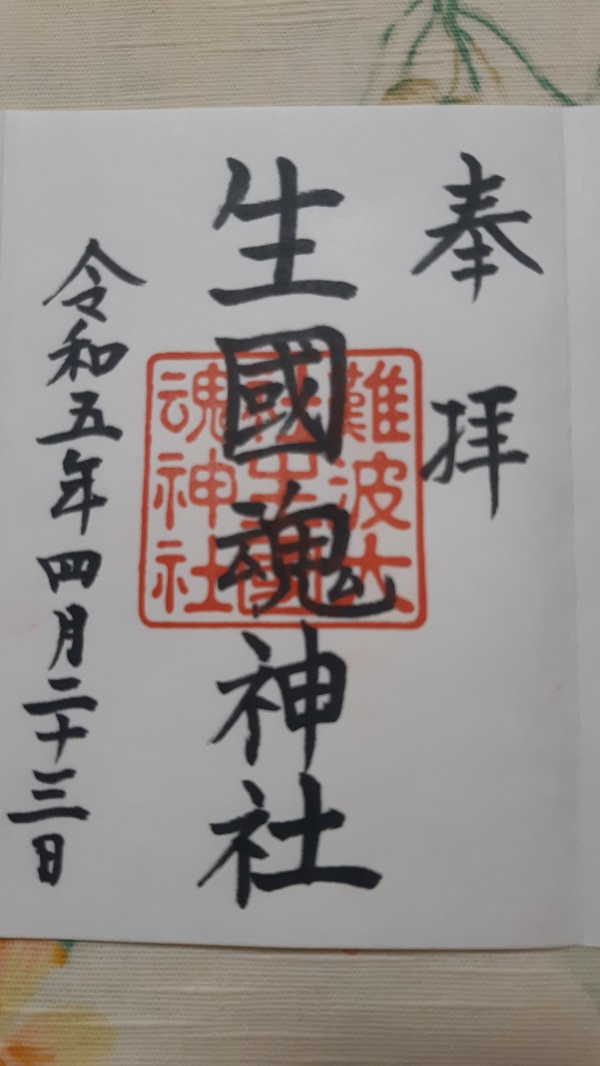 奉拝
生國魂神社
難波大
社生國
魂神社
令和五年四月二十三日